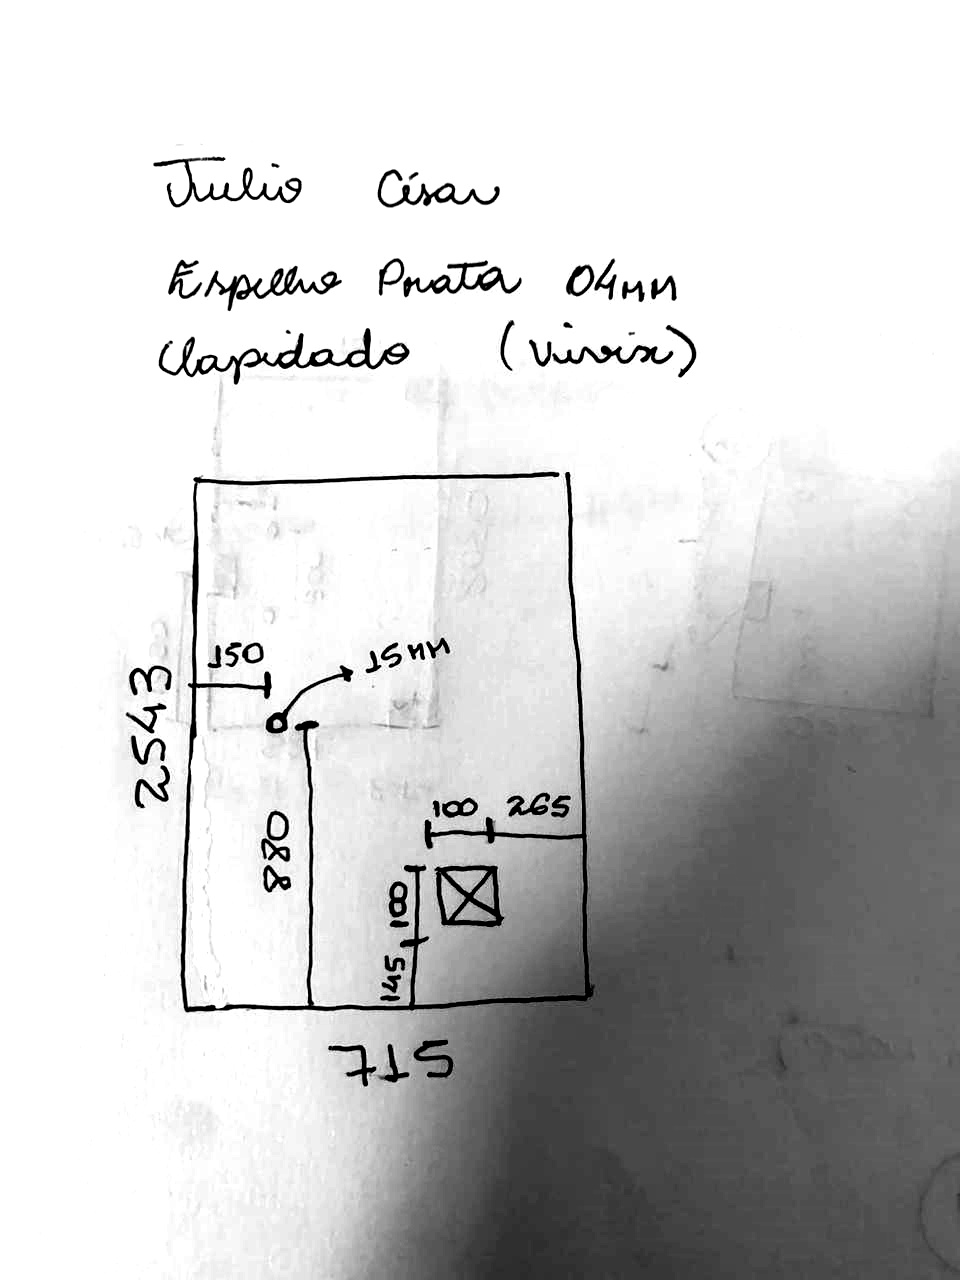 Julio César
Espelho Prata 04mm
Lapidado (Vivix)
150
15mm
2543
880
100 265
100
145
715